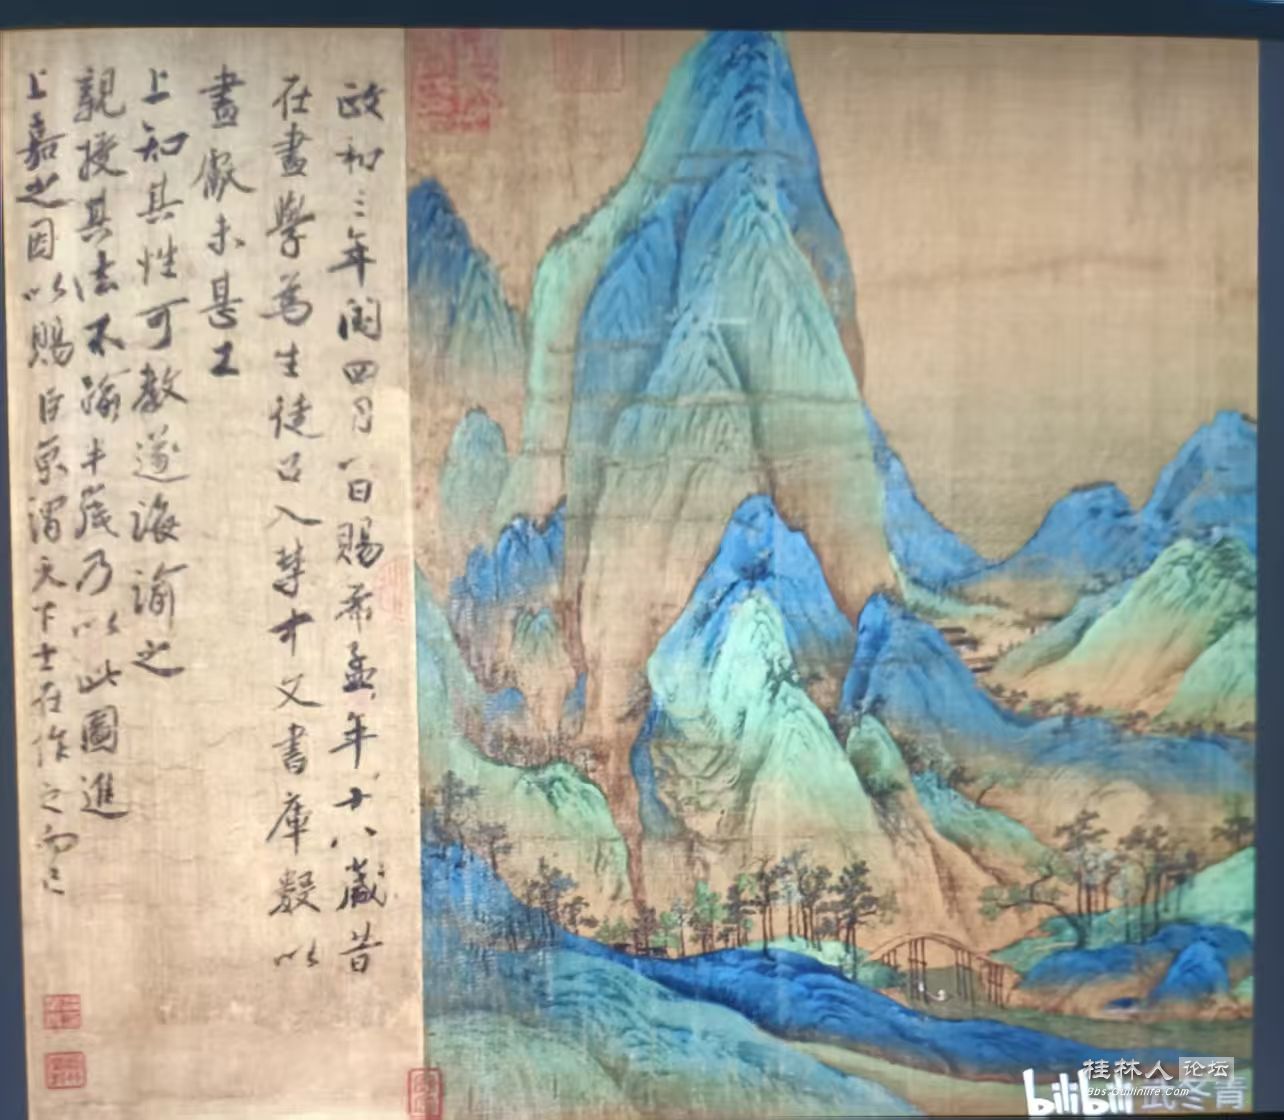 政和三年閏四月一日賜希孟年十八歲昔
在畫學為生徒召入禁中文書庫數以
畫獻未甚工
上知其性可教遂誨諭之
親授其法不踰半歲乃以此圖進
上嘉之因以賜臣京謂天下士在作之而已
桂林人论坛
bbs.Guilinlife.com
bilibili 武冬青